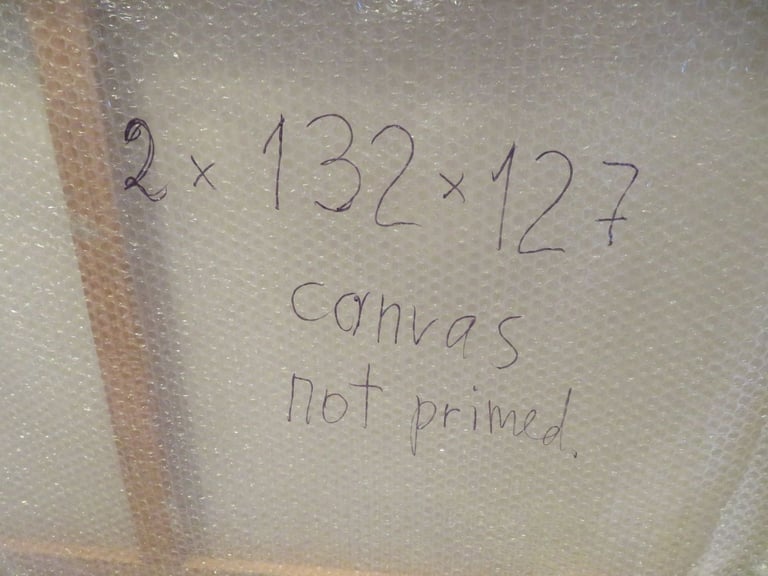 2 x 132 x 127
canvas
not primed.